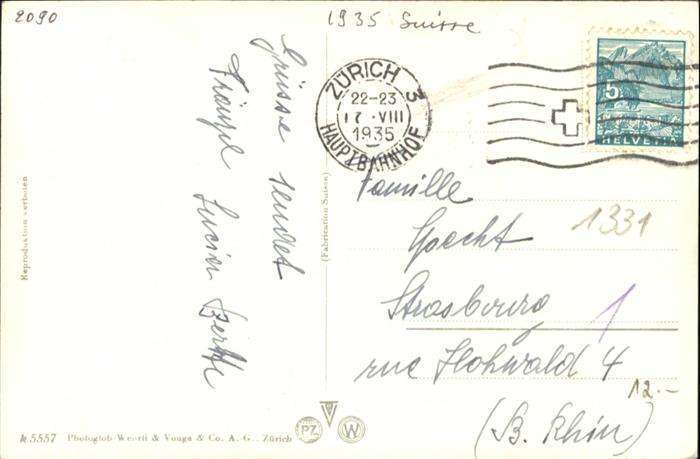 2090
1935 Suisse
Grüsse sendet
Lucien Berthe
Reproduktion verboten
(Fabrication Suisse)
ZÜRICH 3
22-23
17.VIII
1935
HAUPTBAHNHOF
5
HELVETIA
Famille
Goecht
Strasbourg
rue Hohwald 4
(B. Rhin)
1331
1
12.-
k 5557 Photoglob-Wehrli & Vouga & Co. A.-G., Zürich
PZ
W